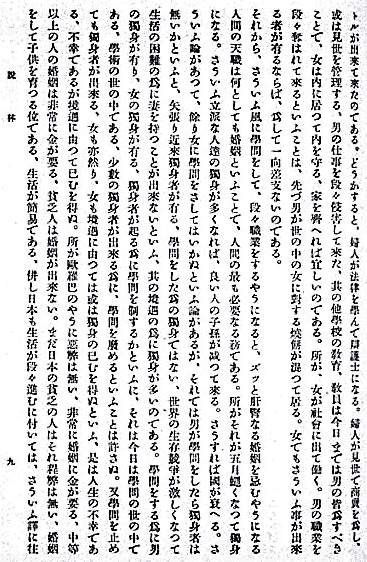 トルが出來て來たのである。どうかすると、婦人が法律を學んで辯護士になる。婦人が見世で商賣を爲し、
或は見世を管理する、男の仕事を段々侵害して來た、其の他學校の敎育、敎員は今日までは男の皆爲すべき
ことで、女は内に居つて内を守る、家を齊へれば宜しいのである。所が、女が社會に出て働く。男の職業を
段々奪はれて來るといふことは、先づ男が世の中の女に對する
者が有るならば、爲して一向差支ないのである。
それから、さういふ風に學問をして、段々職業をするやうになると、ズツと肝腎なる婚姻を忌むやうになる
人間の天職は何としても婚姻といふことで、人間の最も必要なる務である。所がそれが年月遲くなつて獨身
になる。さういふ立派な人達の獨身が多くなれば、良い人の子孫が減つて來る。さうすれば國が衰へる。さ
ういふ論があつて、餘り女に學問をさしてはいかぬといふ論があるが、それでは男が學問をしたら獨身者は
無いかといふと、矢張り近來獨身者が有る、學問をした爲の獨身ではない、世界の生存競爭が激しくなつて
生活の困難の爲に妻を持つことが出來ないといふ、其の境遇の爲に獨身が多いのである。學問をする爲に男
の獨身が有り、女の獨身が有る、獨身者が起る爲に學問を制するかといふに、それは今日は學問の世の中で
ある。學術の世の中である。少數の獨身者が出來る爲に、學問を廢めるといふことは許さぬ。又學問を止め
ても獨身者が出來る、女も亦然り、女も境遇に由つては或は獨身の已むを得ぬといふ、是は人生の不幸であ
る、不幸であるが境遇に由つて已むを得ぬ。所が歐羅巴のやうに惡弊は無い、非常に婚姻に金が要る、中等
以上の人の婚姻は非常に金が要る、貧乏人は婚姻が出來ない。まだ日本の貧乏の人はそれ程弊は無い、婚姻
をして子供を育つる位である、生活が簡易である、併し日本も生活が段々進むに付いては、さういふ譯に往
說林
九